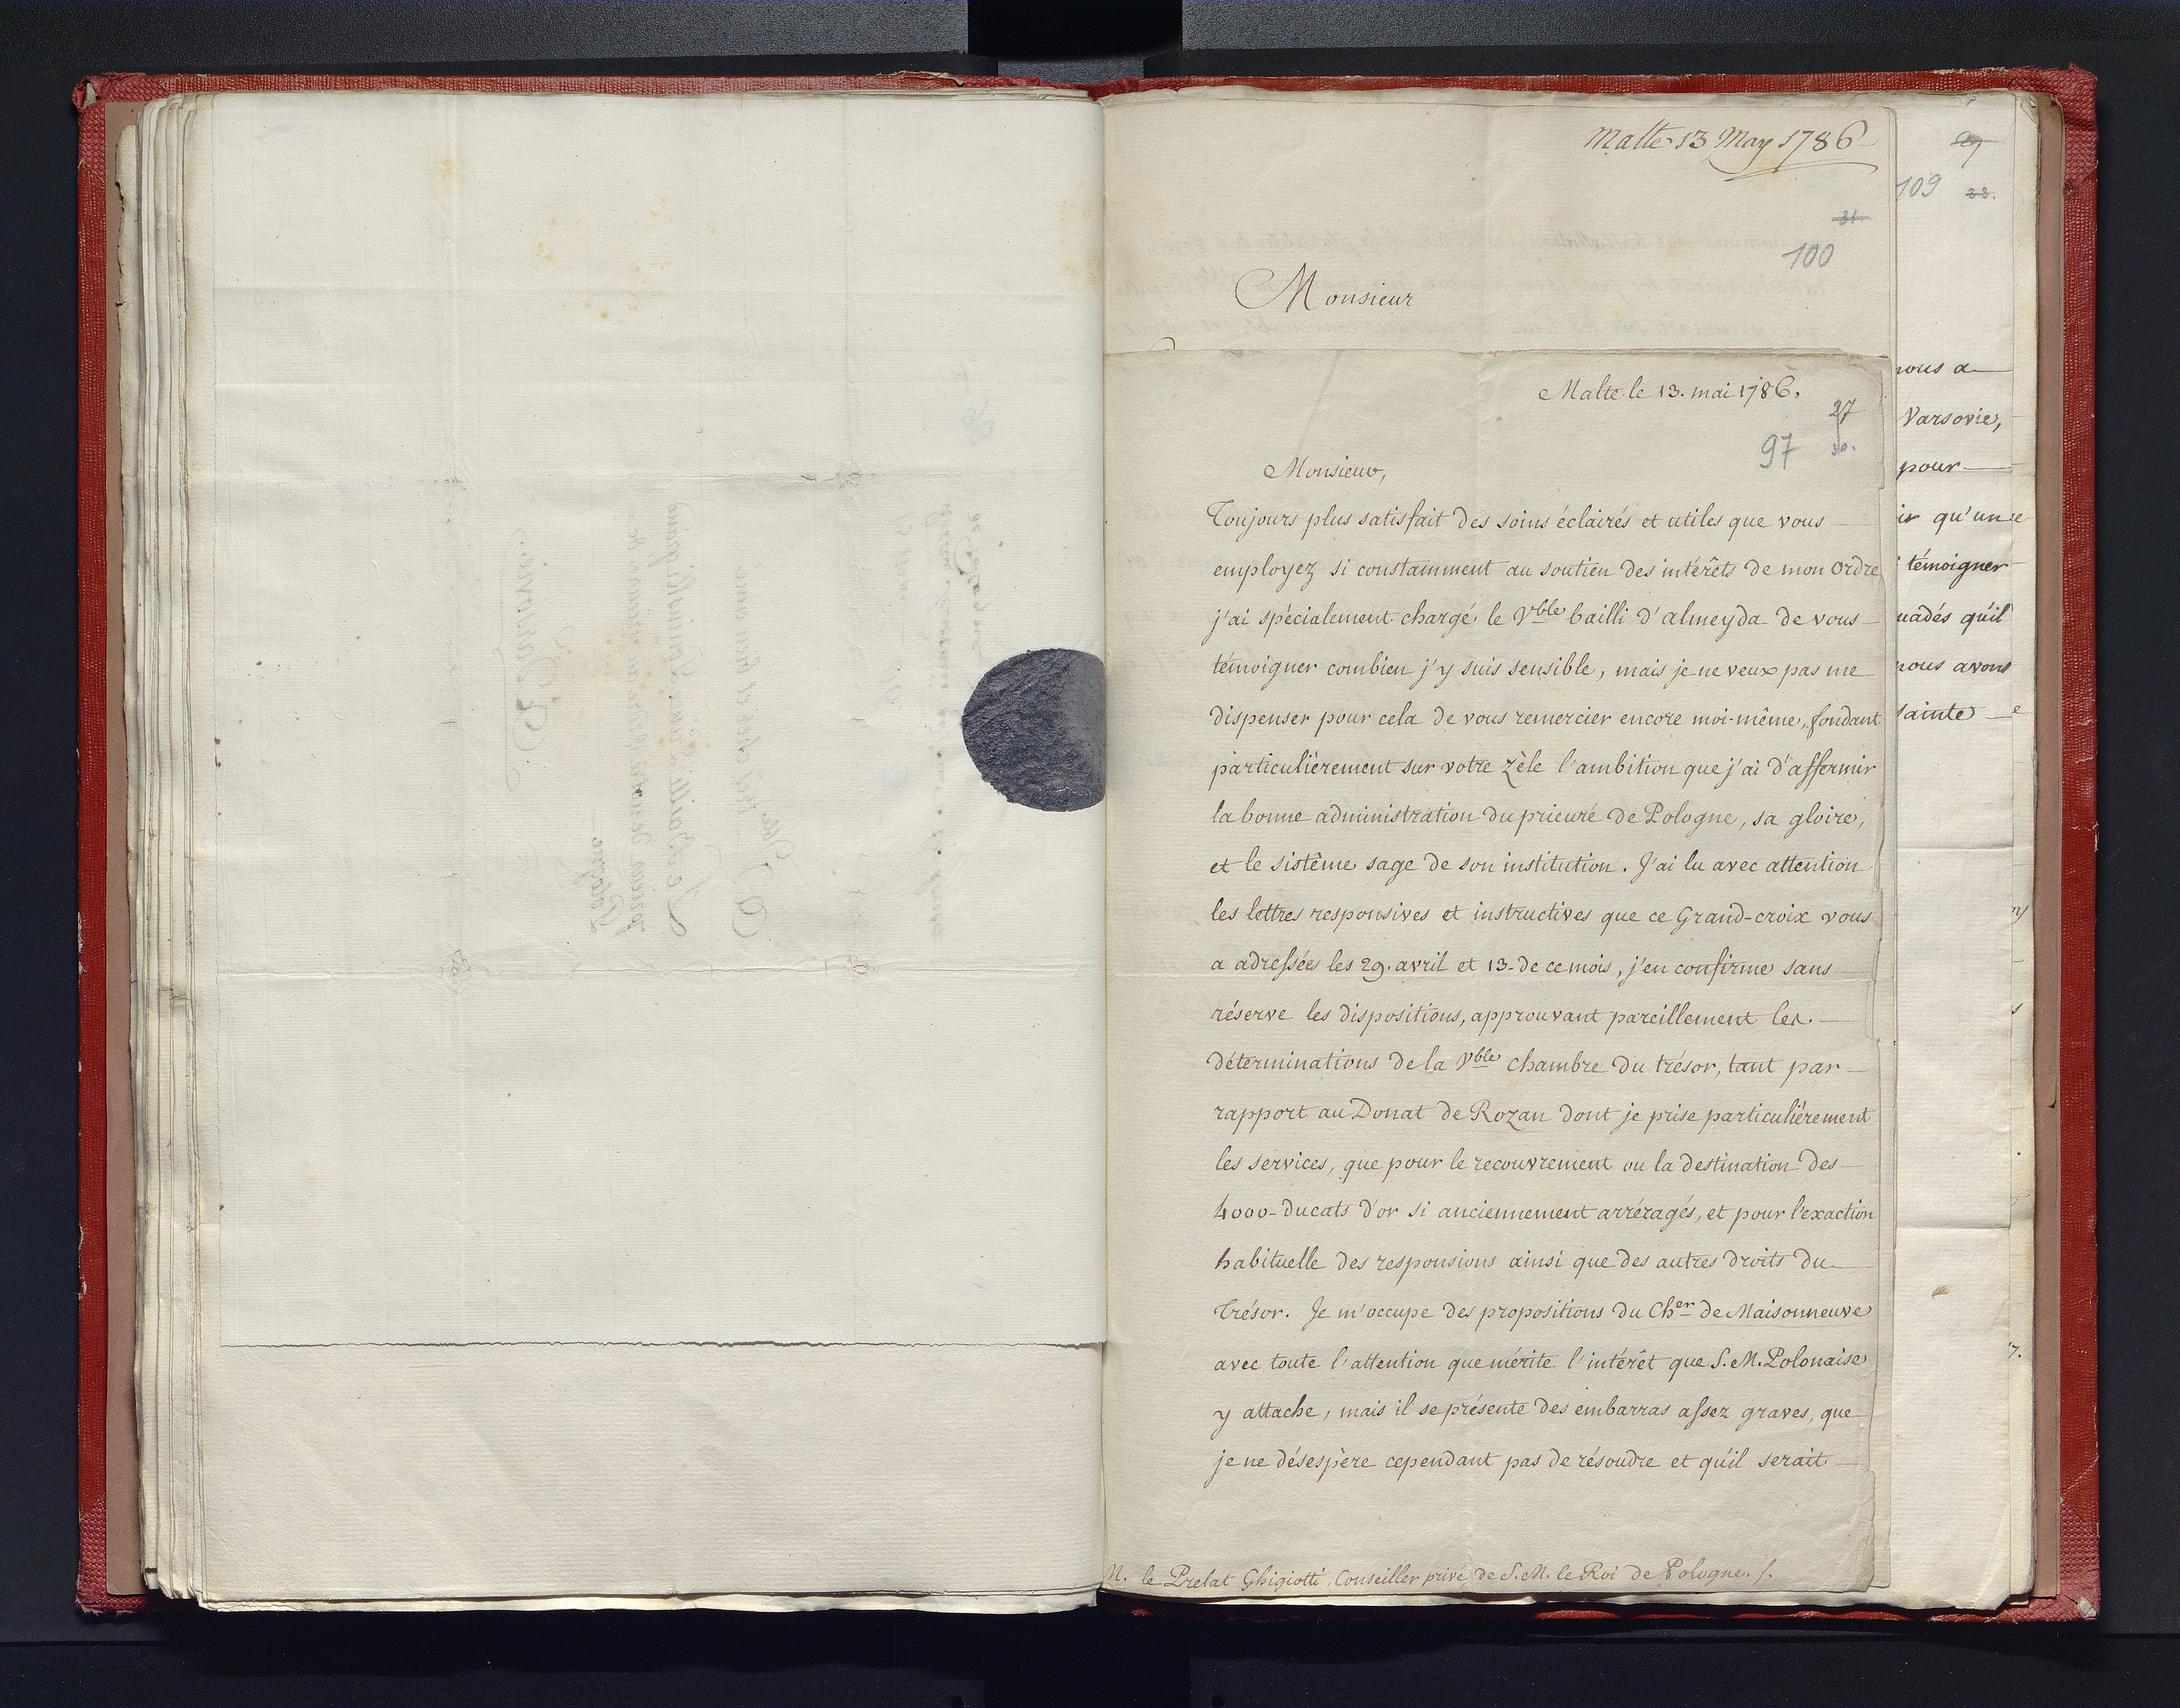 Malte 13 May 1786
31
100
Monsieur
Malte le 13. mai 1786.
27
97 30.
Monsieur,
Toujours plus satisfait des soins éclairés et utiles que vous
employez si constamment au soutien des intérêts de mon Ordre
j'ai spécialement chargé le Vble bailli d'almeyda de vous
témoigner combien j'y suis sensible, mais je ne veux pas me
dispenser pour cela de vous remercier encore moi-même, fondant
particuliérement sur votre zèle l'ambition que j'ai d'affermir
la bonne administration du prieuré de Pologne, sa gloire,
et le sistême sage de son institution. J'ai lu avec attention
les lettres responsives et instructives que ce Grand-croix vous
a adressées les 29. avril et 13. de ce mois, j'en confirme sans
réserve les dispositions, approuvant pareillement les
déterminations de la Vble chambre du trésor, tant par
rapport au Donat de Rozan dont je prise particuliérement
les services, que pour le recouvrement ou la destination des
4000 ducats d'or si anciennement arréragés, et pour l'exaction
habituelle des responsions ainsi que des autres droits du
trésor. Je m'occupe des propositions du Cher de Maisonneuve
avec toute l'attention que mérite l'intérêt que S. M. Polonaise
y attache, mais il se présente des embarras assez graves, que
je ne désespère cependant pas de résoudre et qu'il serait
M. le Prelat Ghigiotti, Conseiller privé de S. M. le Roi de Pologne. /.
109 33.
vous a
Varsovie,
pour
ir qu'une
témoigner
uadés qu'il
nous avons
Sainte